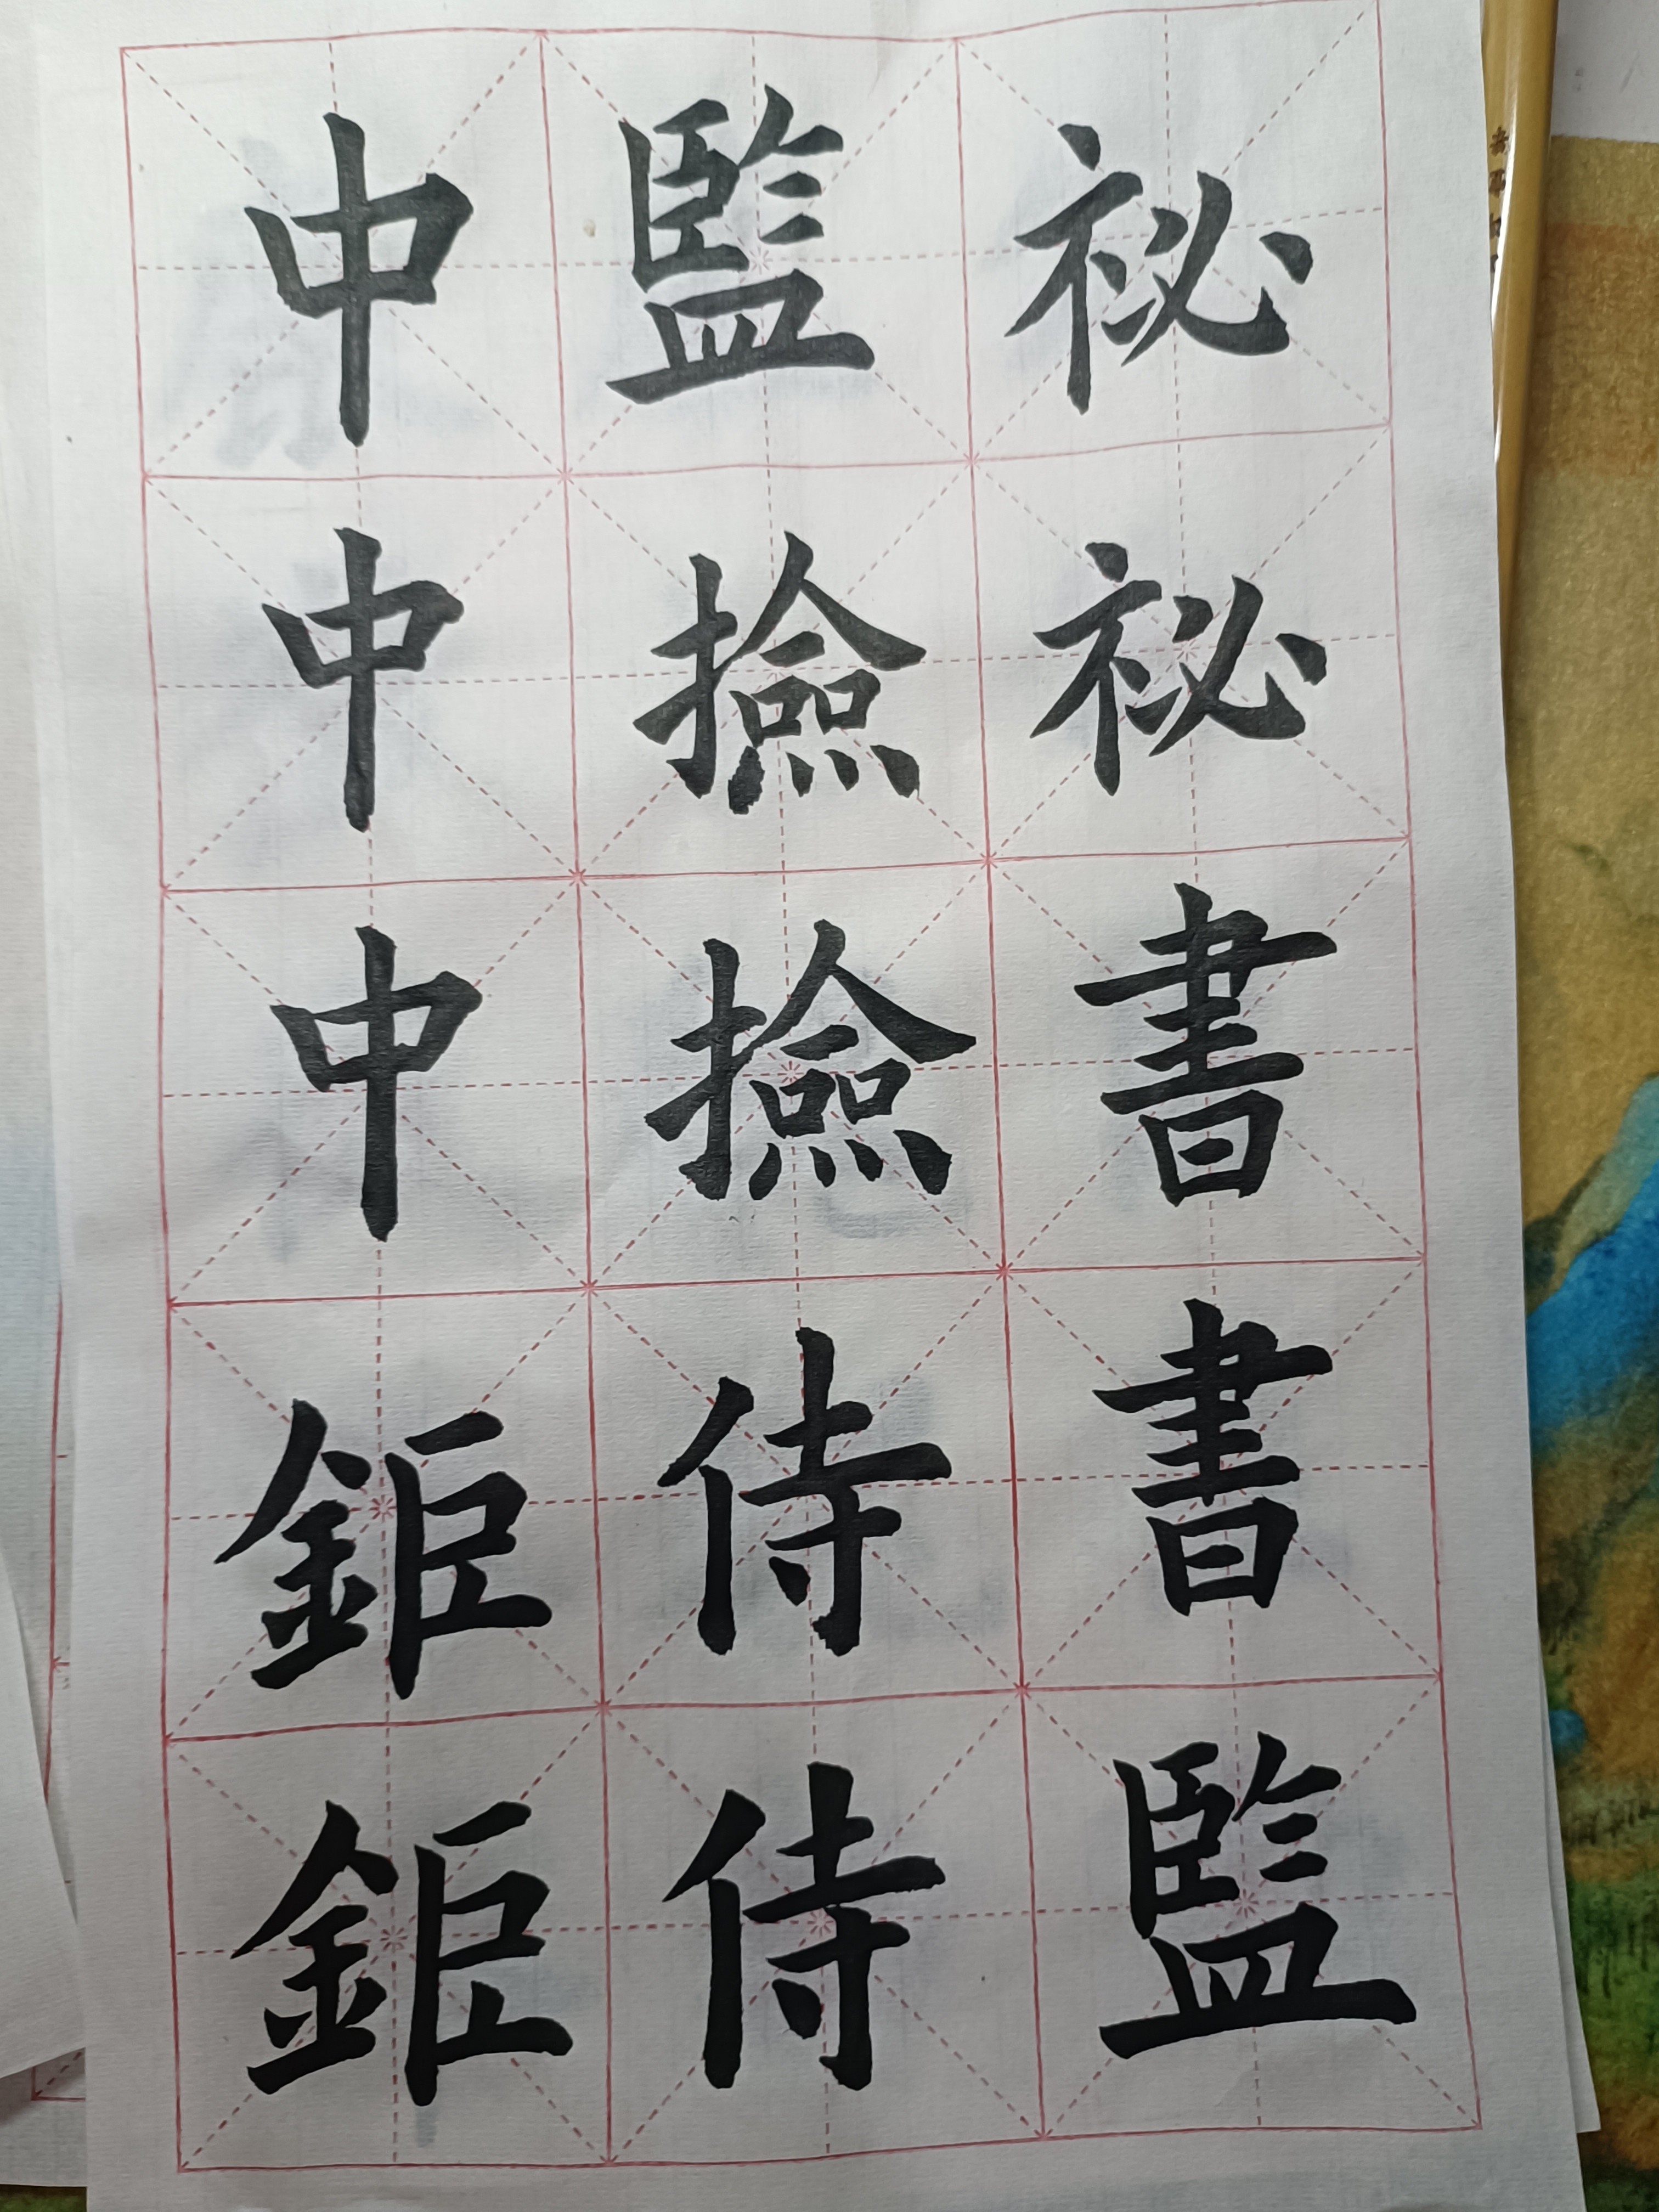 祕祕書書監
監撿撿侍侍
中中中鉅鉅